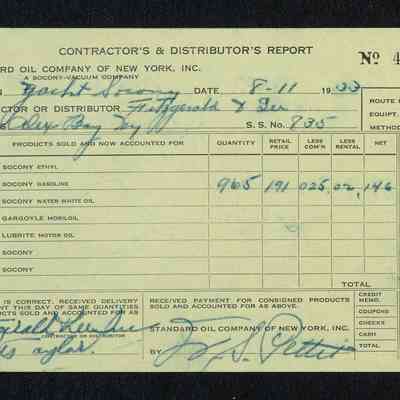 CONTRACTOR'S & DISTRIBUTOR'S REPORT
Nº 4
RD OIL COMPANY OF NEW YORK, INC.
A SOCONY-VACUUM COMPANY
N Yacht Socony DATE 8-11 1933
ROUTE
CTOR OR DISTRIBUTOR Fitzgerald & Lee
EQUIPT.
Alex Bay NY S. S. No. 735
METHOD
PRODUCTS SOLD AND NOW ACCOUNTED FOR QUANTITY RETAIL PRICE LESS COM'N LESS RENTAL NET
SOCONY ETHYL
SOCONY GASOLINE 965 191 025 02 146
SOCONY WATER WHITE OIL
GARGOYLE MOBILOIL
LUBRITE MOTOR OIL
SOCONY
SOCONY
TOTAL
IS CORRECT. RECEIVED DELIVERY
NT THIS DAY OF SAME QUANTITIES
DUCTS SOLD AND ACCOUNTED FOR AS
RECEIVED PAYMENT FOR CONSIGNED PRODUCTS
SOLD AND ACCOUNTED FOR AS ABOVE.
CREDIT MEMO.
COUPONS
CHECKS
CASH
TOTAL
STANDARD OIL COMPANY OF NEW YORK, INC.
CONTRACTOR OR DISTRIBUTOR
BY